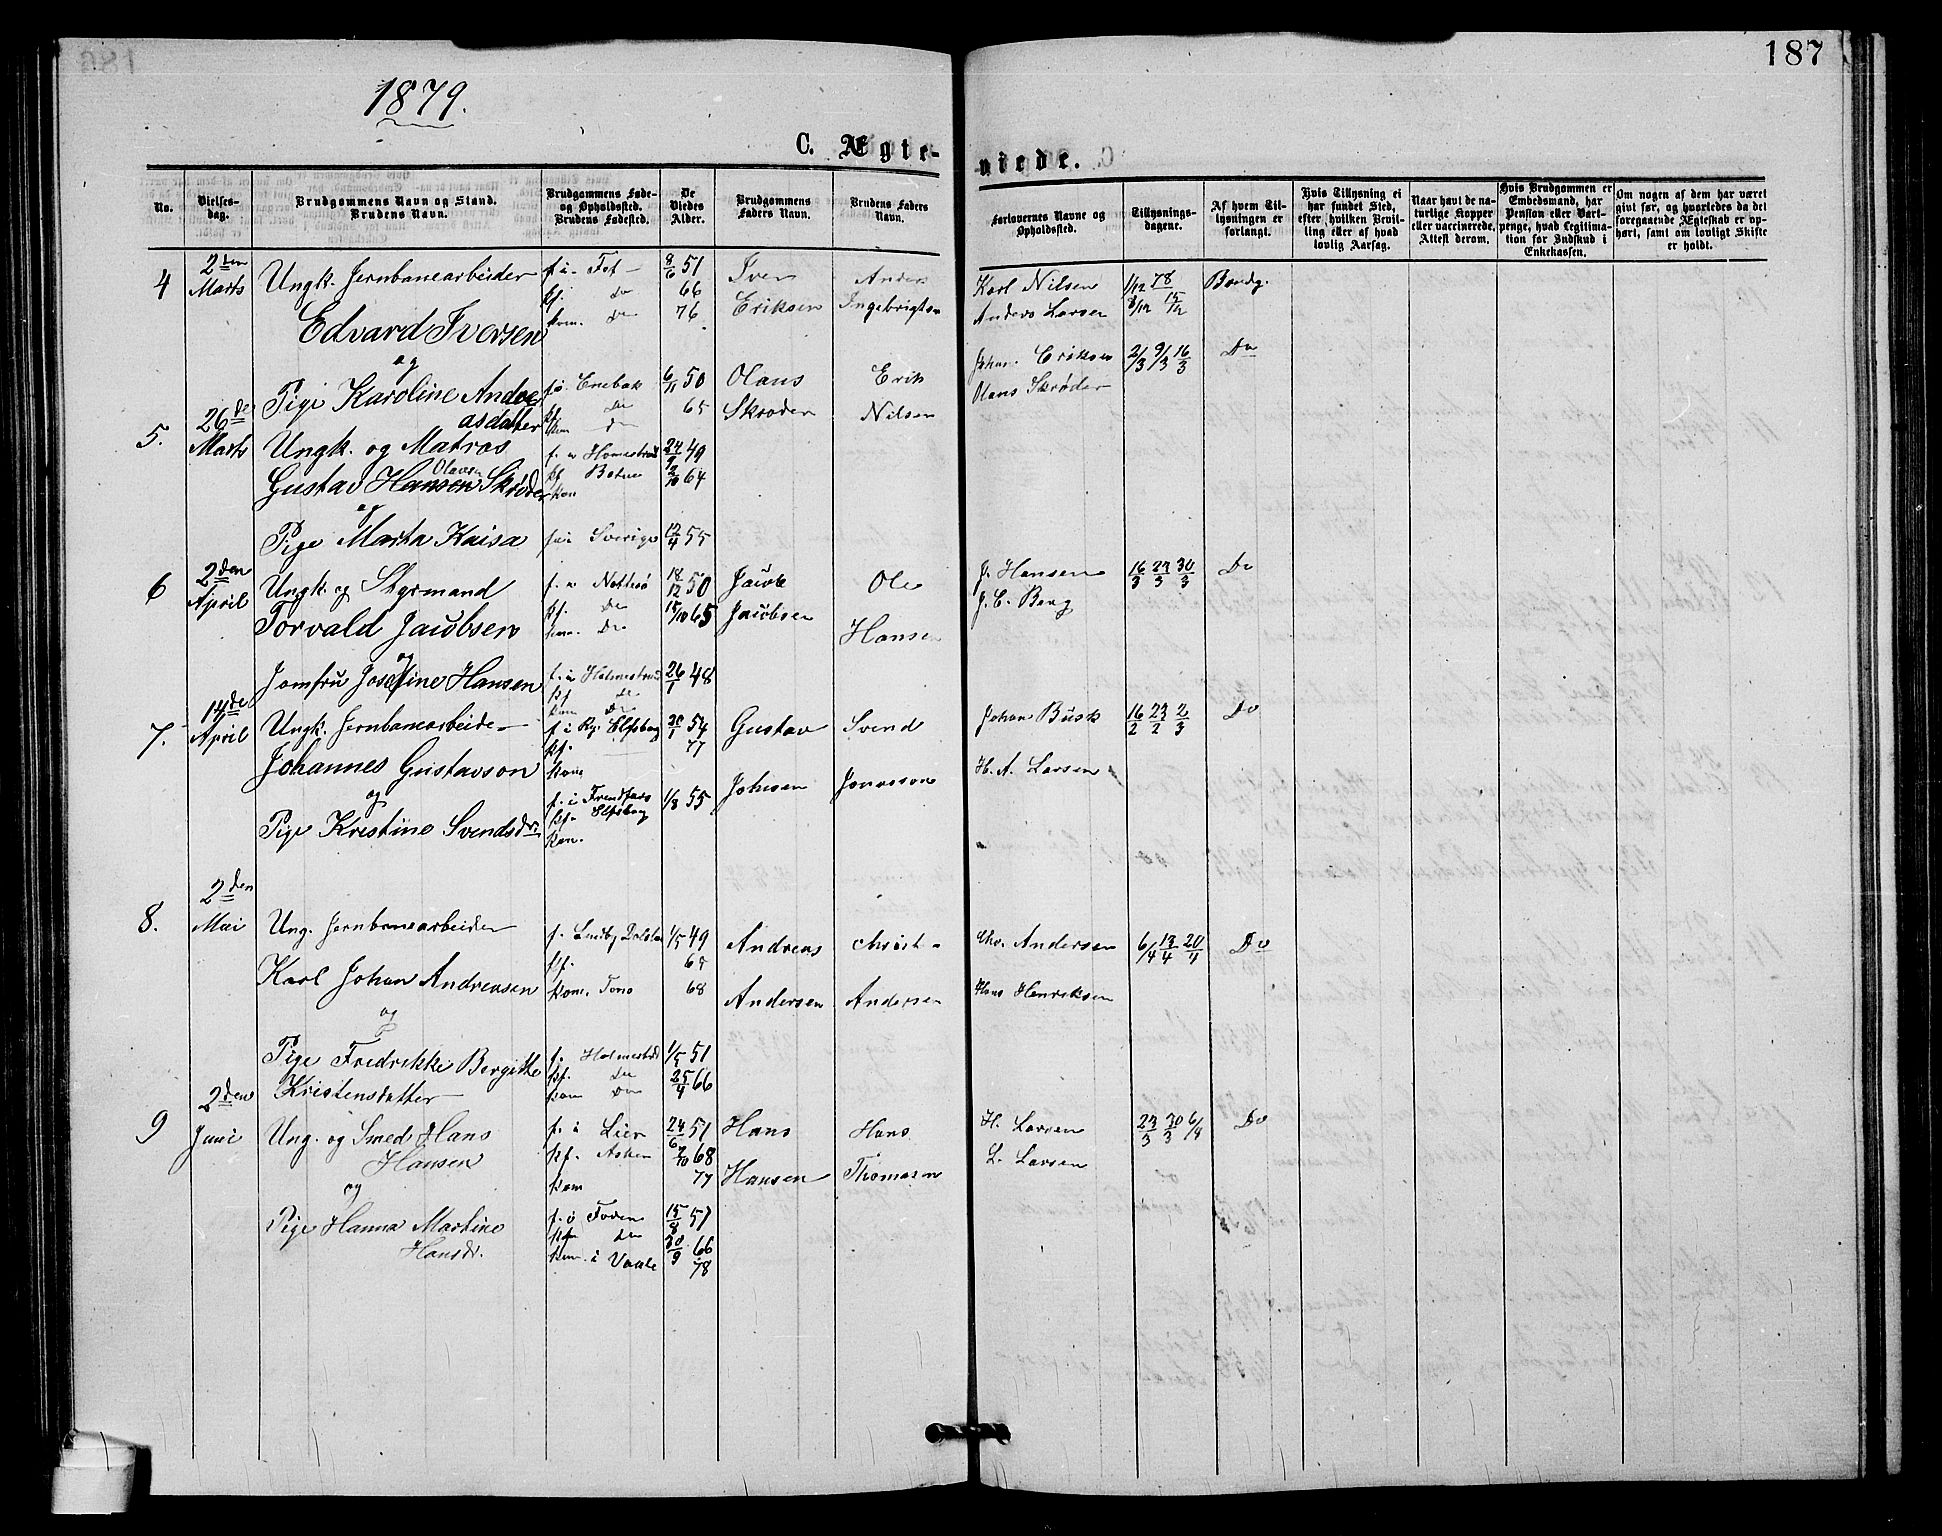 187
1879.
C. Ægteviede.
No.
Vielsesdag.
Brudgommens Navn og Stand.
Brudens Navn.
Brudgommens Føde- og Opholdssted.
Brudens Fødested.
De Viedes Alder.
Brudgommens Faders Navn.
Brudens Faders Navn.
Forlovernes Navne og Opholdssted.
Tillysningsdagene.
Af hvem Tillysningen er forlangt.
Hvis Tillysning ei har fundet Sted, efter hvilken Bevilling eller af hvad lovlig Aarsag.
Naar havt de naturlige Kopper eller vaccinerede. Attest derom.
Hvis Brudgommen er Embedsmand, har Pension eller Vartpenge, hvad Legitimation for Indskud i Enkekassen.
Om nogen af dem har været givt før, og hvorledes da det foregaaende Ægteskab er ophørt, samt om lovligt Skifte er holdt.
4 2den Marts
Ungk. Jernbanearbeider
Edvard Iversen
og
Pige Karoline Andreasdatter
f. i
kf. do
kom. do
8/6 51
66
76
Iver Eriksen
Anders Ingebrigtsen
Karl Nilsen
Anders Larsen
1/12 78 8/12 15/12
Brudg.
5. 26de Marts
Ungk. og Matros
Gustav Hansen Olavsen Skrøder
og
Pige Marta Kaisa
f. i Enebak
do
6/11 50
65
f. i Homestrand
kf Botne
kon
24/9 49
2/10 64
f. i Sverige
12/4 55
Olaus Skrøder
Erik Nilsen
Johan. Eriksen
Olaus Skrøder
2/3 9/3 16/3
Do
6 2den April
Ungk. og Styrmand
Torvald Jacobsen
og
Jomfru Josefine Hansen
f. i Nøtterø
kf. Do
kon. Do
18/12 50
15/10 65
f. i Holmestrand
kf do
kon Do
26/1 48
Jacob Jacobsen
Ole Hansen
J. Hansen
J. C. Berg
16/3 23/3 30/3
Do
7. 14de April
Ungk. Jernbanearbeide-
Johannes Gustavson
og
Pige Kristine Svendsdr.
f. i Elfsborg
kf.
kon
54
77
f. i
kf. Elfsborg
kon.
1/8 55
Gustav Johnsen
Svend Jonasson
Johan Busk
H. A. Larsen
16/2 23/2 2/3
Do
8. 2den Mai
Ung. Jernbanearbeider
Karl Johan Andreasen
og
Pige Fredrikke Bergitte
Kristensdatter
f.
kf.
kom.
1/5 49
65
68
f. Holmestrd
kf. do
kom do
1/5 51
25/4 66
Andreas Andersen
Christ- Andersen
Chr. Andersen
Hans Henriksen
6/4 13/4 20/4
Do
9 2den Juni
Ung. og Smed Hans
Hansen
og
Pige Hanna Martine
Hansdr.
f. i Lier
kf. Asker
kom
24/6 51
2/10 68
77
kf do
kom. i Vaale
15/8 57
30/9 66
78
Hans Hansen
Hans Thomasen
H. Larsen
L. Larsen
23/3 30/3 6/4
Do